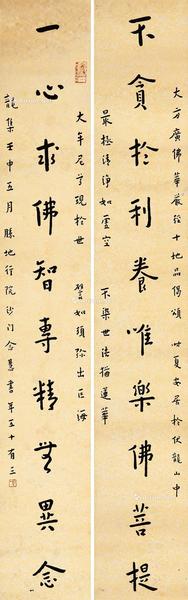 大方廣佛華嚴經十地品偈頌 夏安居於伏龍山中
不貪於利養唯樂佛菩提
最極清淨如虛空 不染世法猶蓮華
大牟尼尊現於世 譬如須弥出巨海
一心求佛智專精無異念
龍集壬申五月勝地行院沙门念慧書年五十有三